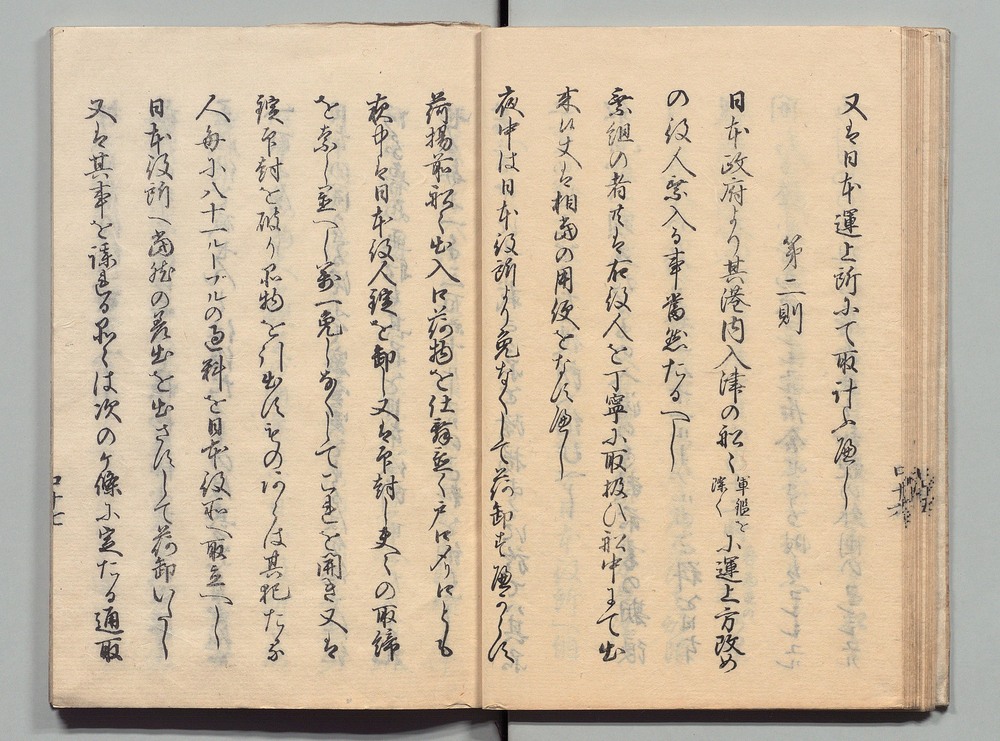 又は日本運上所にて取計ふへし
第二則
日本政府より其港内入津の船々軍艦を除くに運上方改め
の役人乗入る事當然たるへし
乗組の者共は右役人を丁寧に取扱ひ船中にて出
来候丈は相當の用便をなすへし
夜中は日本役所より免なくして荷卸す へからす
荷揚前船々出入口荷物を仕 戸口〆り口とも
夜中は日本役人錠を卸し又は印封し 々の取締
を くへし萬一免しなくしてこれを開き又は
錠印封を破り品物を引出すものあらは其犯たる
人毎に八十一ルーブルの過料を日本役所へ取立へし
日本役所へ當然の差出を出さすして荷卸いたし
又は其事を謀る品々は次のケ條に定たる通取